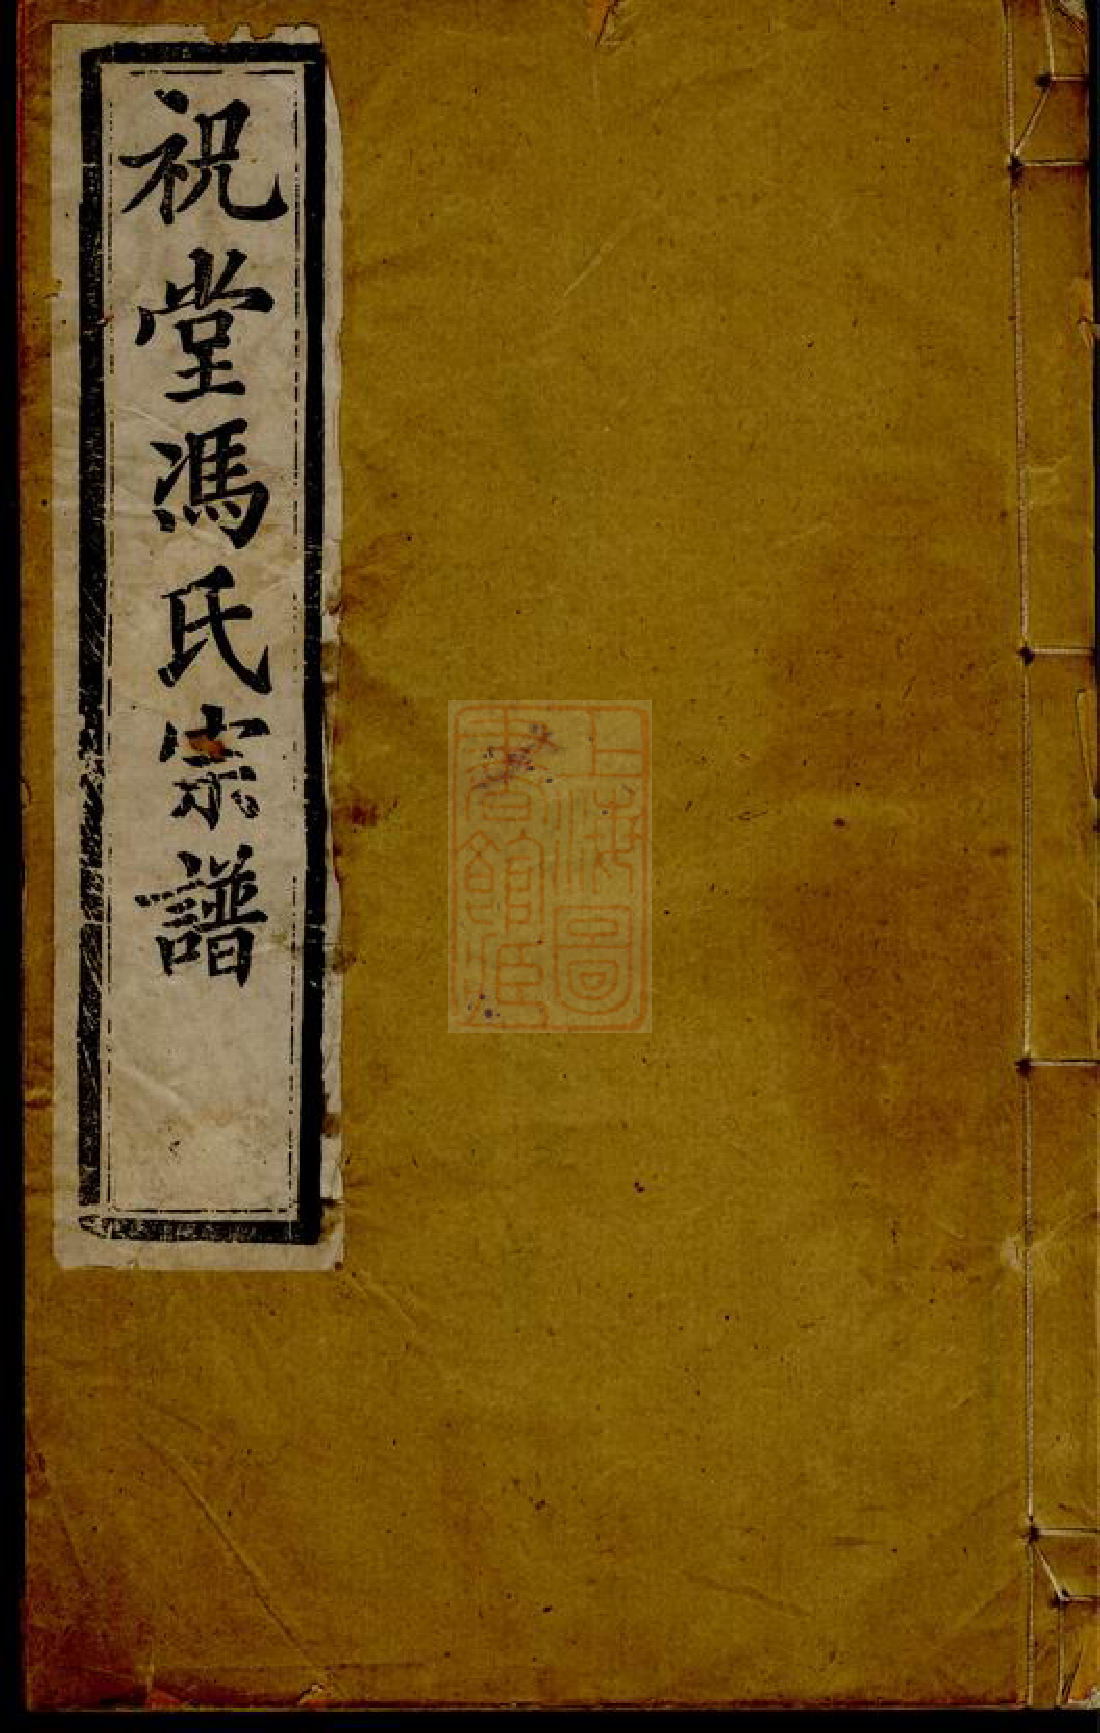 祝堂馮氏宗譜
上海圖
書館藏